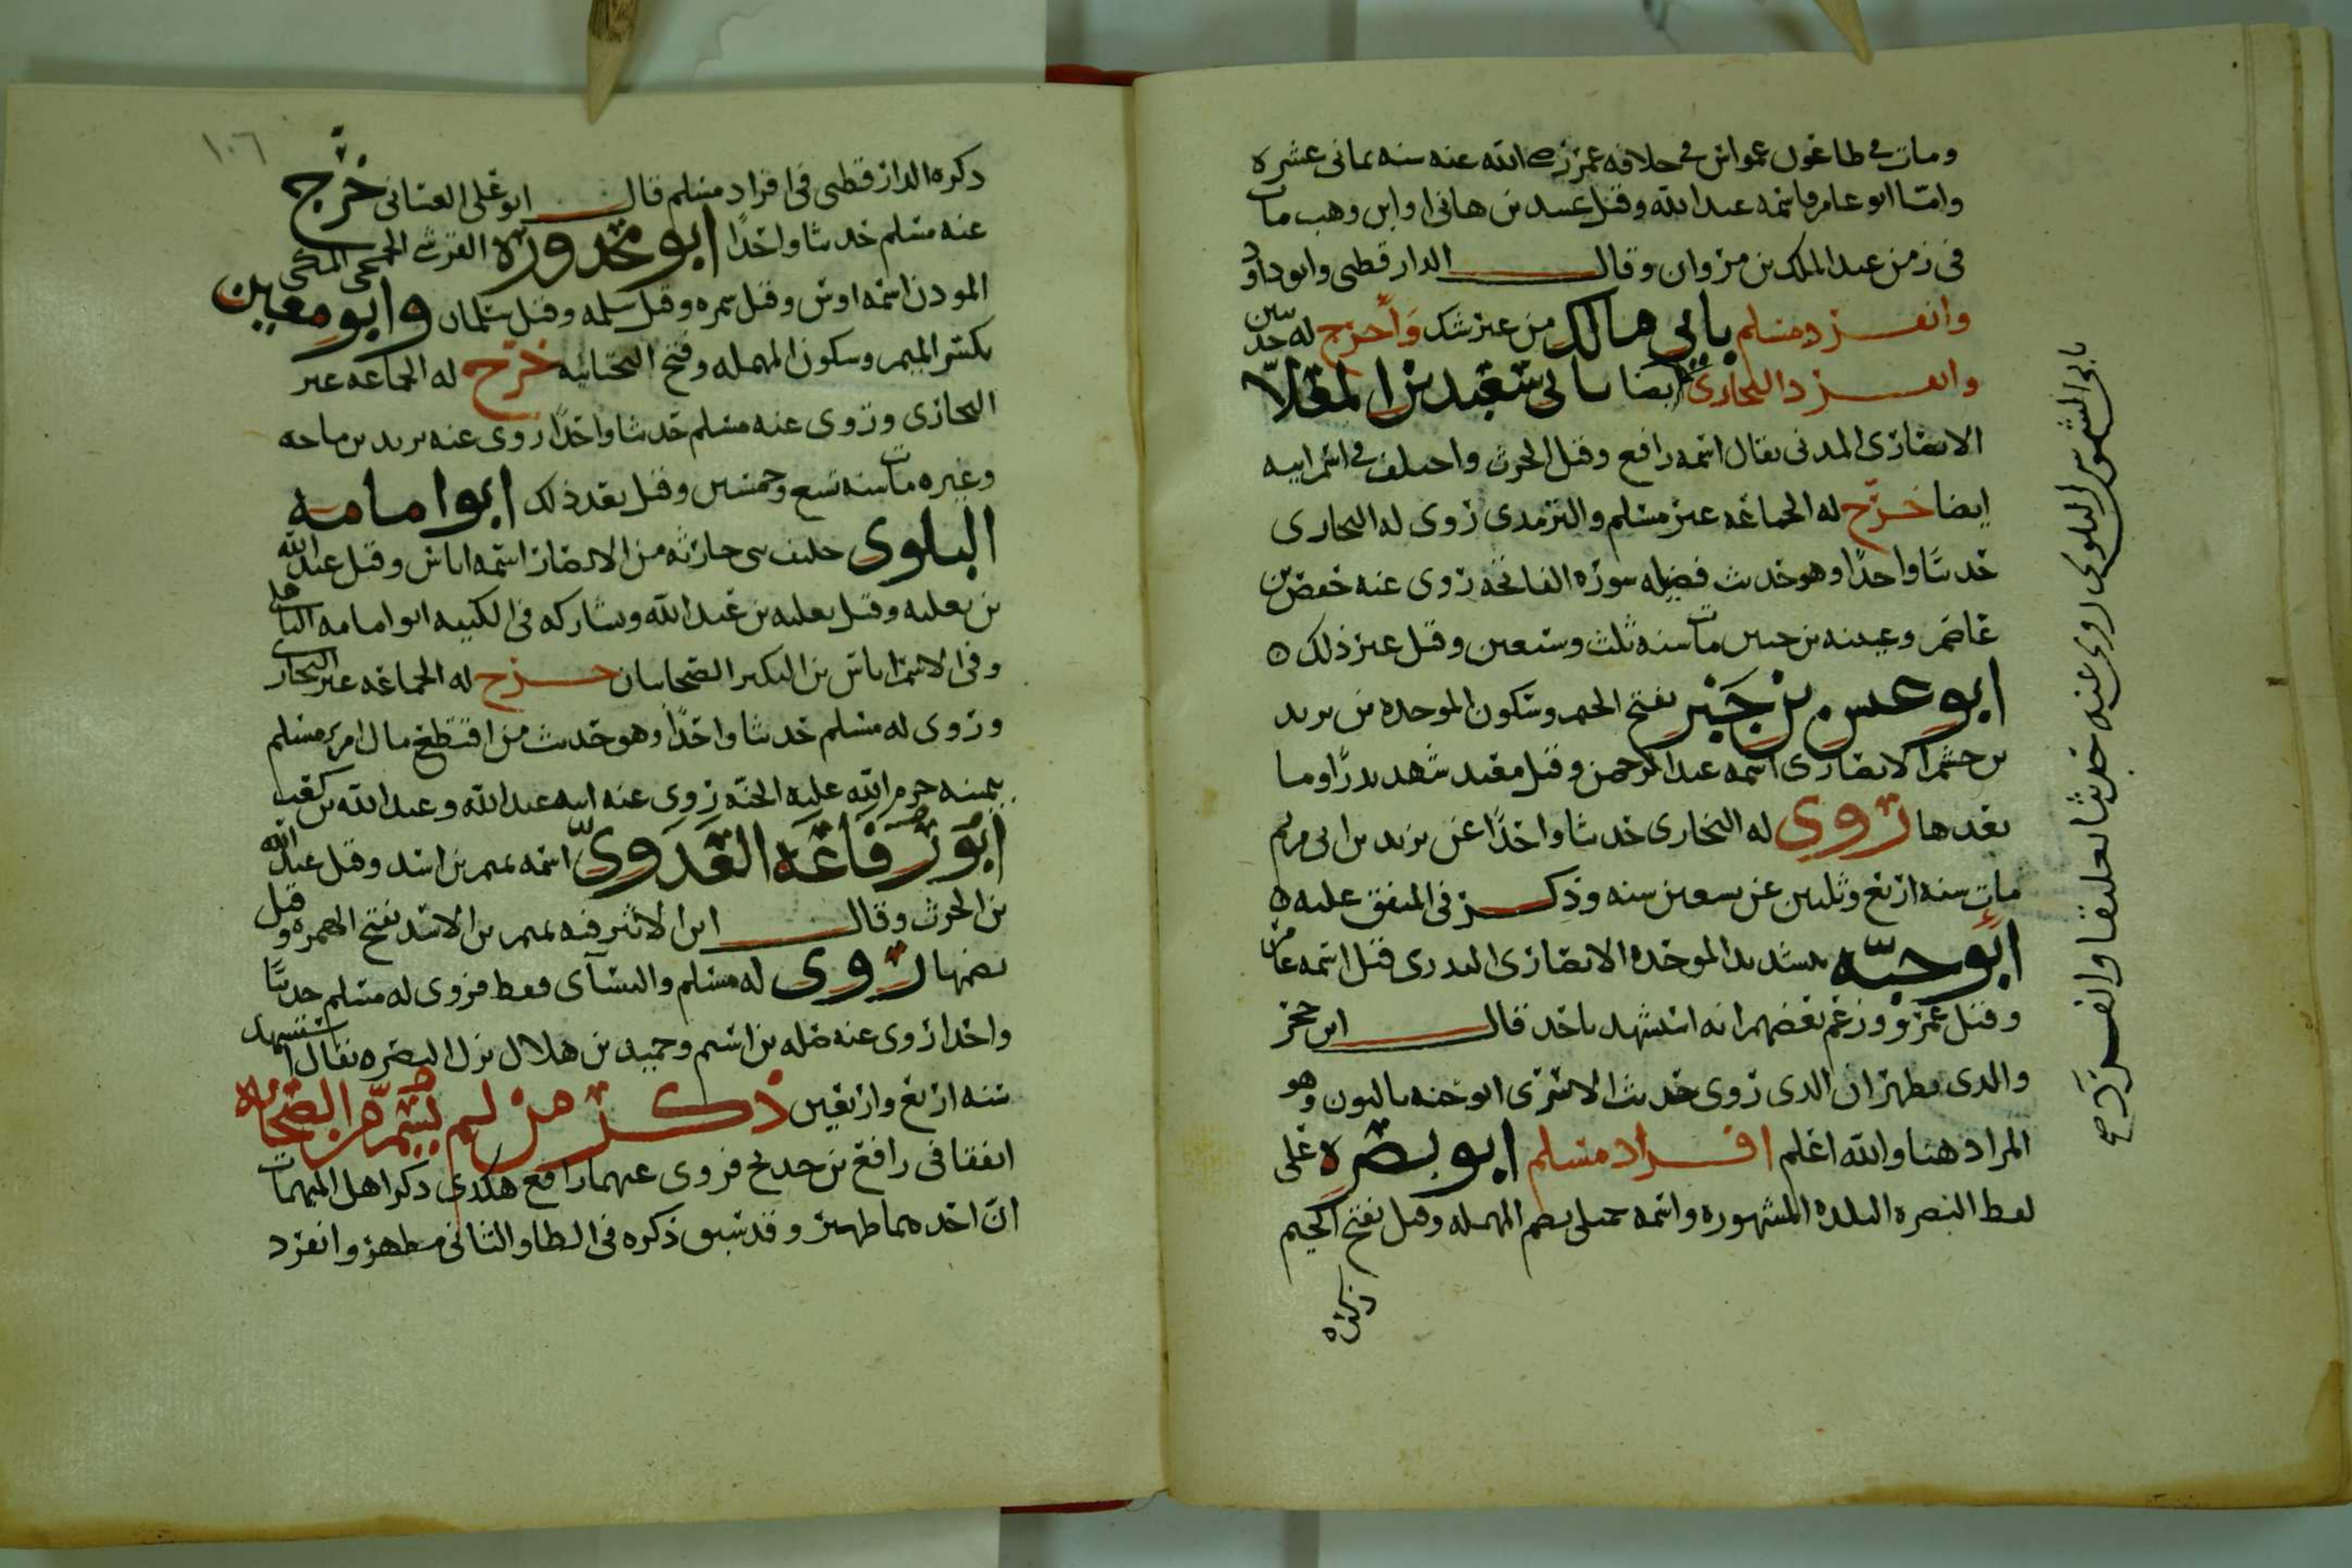 ومات في طاعون عمواس في خلافة عمر رضي الله عنه سنه ثماني عشره
واما ابو عامر فاسمه عبد الله وقيل عبيد بن هاني او ابن وهب مات
في زمن عبد الملك بن مروان وقال الدارقطني وابو داود
وانفرد مسلم بابي مالك من غير شك وأخرج له حديثين
وانفرد البخاري ايضا بابي سعيد بن المعلّا
الانصاري المدني يقال اسمه رافع وقيل الحرث واختلف في اسم ابيه
ايضا خرّج له الجماعه غير مسلم والترمذي روى له البخاري
حديثا واحدًا وهو حديث فضيله سورة الفاتحه روى عنه حفص بن
عاصم وعبيد بن حنين مات سنه ثلث وسبعين وقيل غير ذلك ه
ابو عبس بن جَبْر بفتح الجيم وسكون الموحده بن يزيد
بن جشم الانصاري اسمه عبد الرحمن وقيل معبد شهد بدرًا وما
بعدها روى له البخاري حديثا واحدًا عن يزيد بن ابي مريم
مات سنه اربع وثلثين عن سبعين سنه وذكر في المتفق عليه ه
ابو حبّه بتشديد الموحده الانصاري البدري قيل اسمه عامر
وقيل عمرو وزعم بعضهم انه استشهد باحد قال ابن حجر
والذي يظهر ان الذي روى حديث الاسرى ابو حنه بالنون وهو
المراد هنا والله اعلم افراد مسلم ابو بصره على
لفظ البصره البلده المشهوره واسمه حميل بضم المهمله وقيل بفتح الجيم
ذكره
بابي الشموس البلوى روى عنه حديثا تعليقا وانفرد صح
١٠٦
ذكره الدارقطني في افراد مسلم قال ابو علي الغساني خرّج
عنه مسلم حديثا واحدًا ابو محذورة القرشي الجمحي المكي
المؤذن اسمه اوس وقيل سمره وقيل سلمه وقيل سلمان وابو معين
بكسر الميم وسكون المهمله وفتح التحتانيه خرّج له الجماعه غير
البخاري وروى عنه مسلم حديثا واحدًا روى عنه يزيد بن ماجه
وغيره مات سنه تسع وخمسين وقيل بعد ذلك ابو امامه
البلوى حليف بني حارثه من الانصار اسمه اياس وقيل عبد الله
بن ثعلبه وقيل ثعلبه بن عبد الله ويشاركه في الكنيه ابو امامه الباهلي
وفي الاسم اياس بن البكير الصحابيان خرج له الجماعه غير البخاري
وروى له مسلم حديثا واحدًا وهو حديث من اقتطع مال امرئ مسلم
بيمينه حرم الله عليه الجنّه روى عنه ابنه عبد الله وعبد الله بن كعب
ابو رفاعه العَدَوىّ اسمه تميم بن اسد وقيل عبد الله
بن الحرث وقال ابن الاثير فيه تميم بن الاسد بفتح الهمزه وقيل
بضمها روى له مسلم والنسآى فقط فروى له مسلم حديثًا
واحدا روى عنه صله بن اشيم وحميد بن هلال نزل البصره يقال استشهد
سنه اربع واربعين ذكر من لم يسمّ من الصحابه
اتفقا في رافع بن خديج فروى عن عميه رافع هكذى ذكر اهل المبهمات
انّ احدهما ظهير وقد سبق ذكره في الظا والثاني مظهر وانفرد